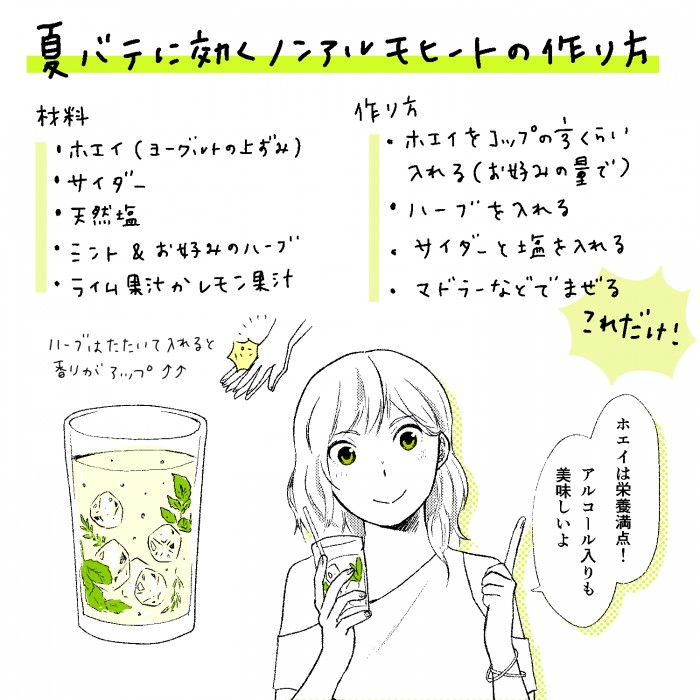 夏バテに効くノンアルモヒートの作り方
材料
・ホエイ(ヨーグルトの上ずみ)
・サイダー
・天然塩
・ミント&お好みのハーブ
・ライム果汁かレモン果汁
作り方
・ホエイをコップの⅓くらい
入れる(お好みの量で)
・ハーブを入れる
・サイダーと塩を入れる
・マドラーなどでまぜる
これだけ!
ハーブはたたいて入れると
香りがアップ↑↑
ホエイは栄養満点!
アルコール入りも
美味しいよ